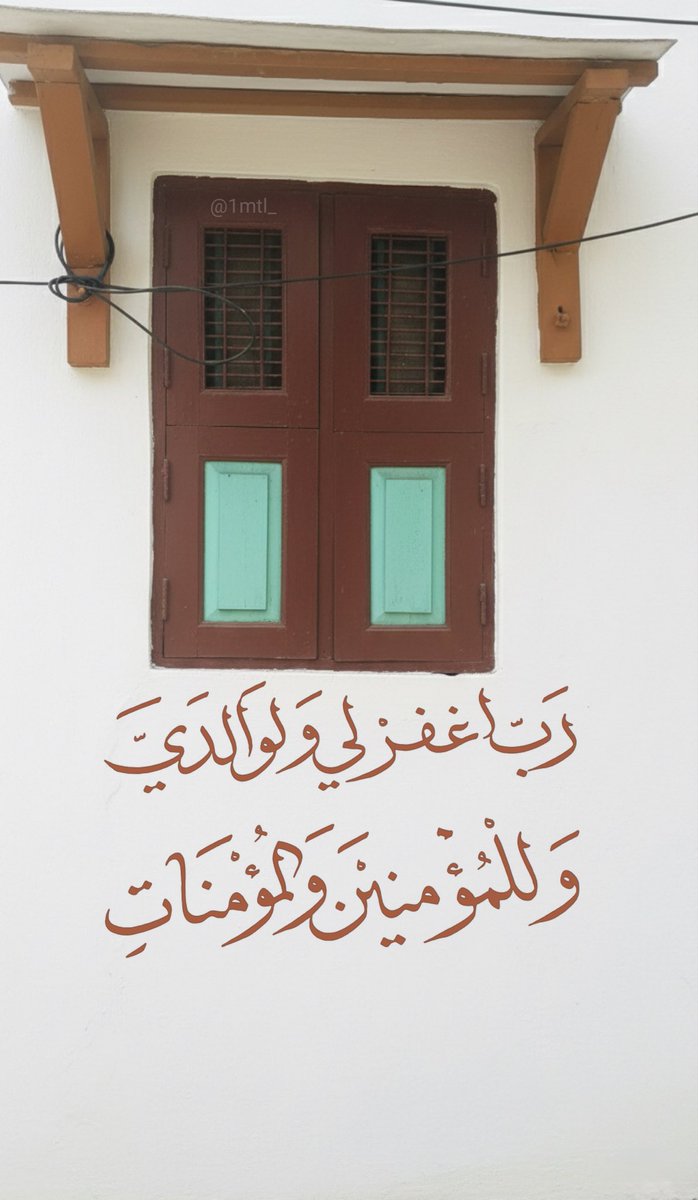 @1mtl_
رَبّ اغفرْ لي وَلوَالدَيَّ
وَللْمُؤْمنينَ وَالمُؤْمنَاتِ